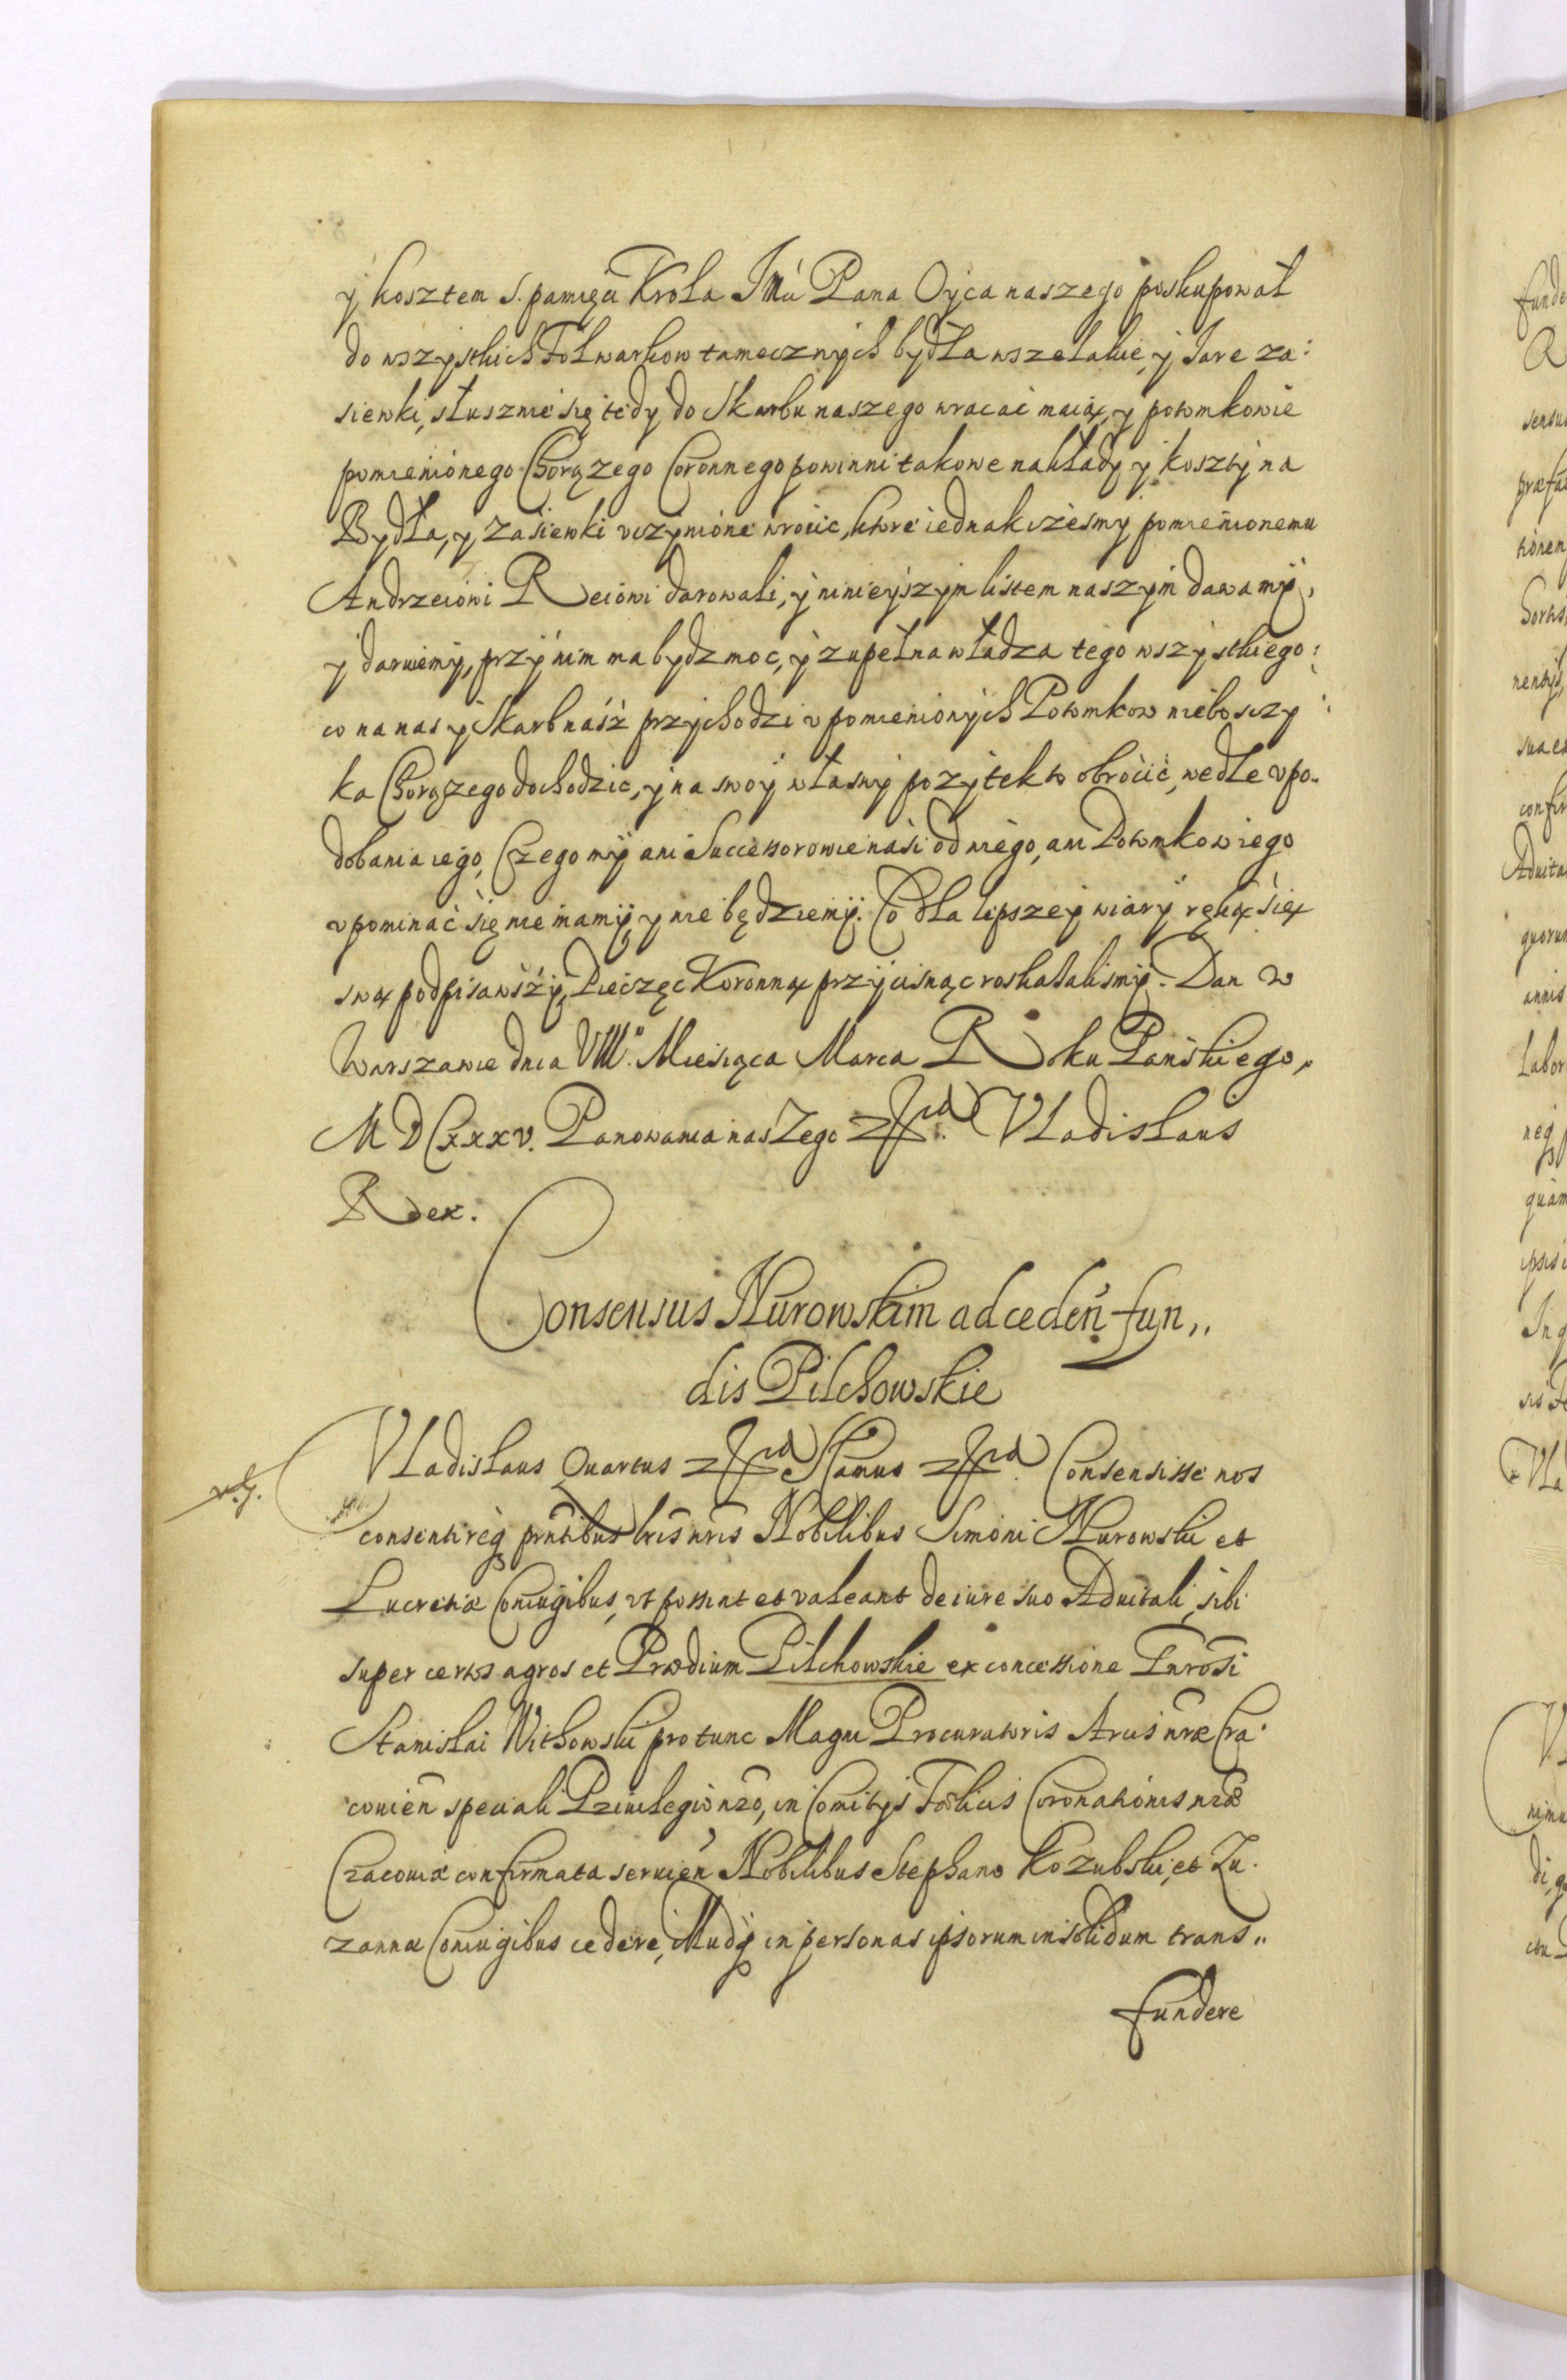 y kosztem s. pamięci Krola JMci Pana Oyca naszego poskupował
do wszystkich Folwarkow tamecznych bydła wszelakie, y Jare za:
siewki, słusznie się tedy do Skarbu naszego wracać maią, y potomkowie
pomienionego Chorązego Coronnego powinni takowe nakłady y koszty na
Bydła, y zasiewki vczynione wrocic, ktore iednak izesmy pomienionemu
Andrzeiowi Reiowi darowali, y ninieyszym listem naszym dawamy,
y daruiemy, przy nim ma bydz moc, y zupełna władza tego wszystkiego:
co na nas y Skarb nasz przychodzi v pomienionych Potomkow niebosczy
ka Chorązego dochodzic, y na swoy własny pozytek to obrócić, wedle vpo-
dobania iego, Czego my ani Successorowie nasi od niego, ani Potomkow iego
vpominać się nie mamy, y nie będziemy. Co dla lepszey wiary ręką się
swą podpisawszy, Pieczęc Koronną przycisnąc roskasalismy. Dan w
Warszawie dnia VIII. Miesiąca Marca Roku Pańskiego,
MDCxxxv. Panowania naszego Vladislaus
Rex.
Consensus Nurowskim ad ceden fun,,
dis Pilchowskie
Vladislaus Quartus Consensisse nos
consentireq prntibus lris nris Nobilibus Simoni Nurowski et
Lucretiæ Coniugibus, vt possint et valeant de iure suo Aduitali, sibi
super certos agros et Prædium Pilchowskie ex concessione Gnrosi
Stanislai Withowski pro tunc Magni Procuratoris Arcis nræ Cra-
couien speciali Priuilegio nro, in Comitys Fœlicis Coronationis nræ
Cracouiæ confirmata seruien Nobilibus Stephano Kozubski, et Zu-
zannæ Coniugibus cedere, illudq in personas ipsorum in solidum trans,,
fundere